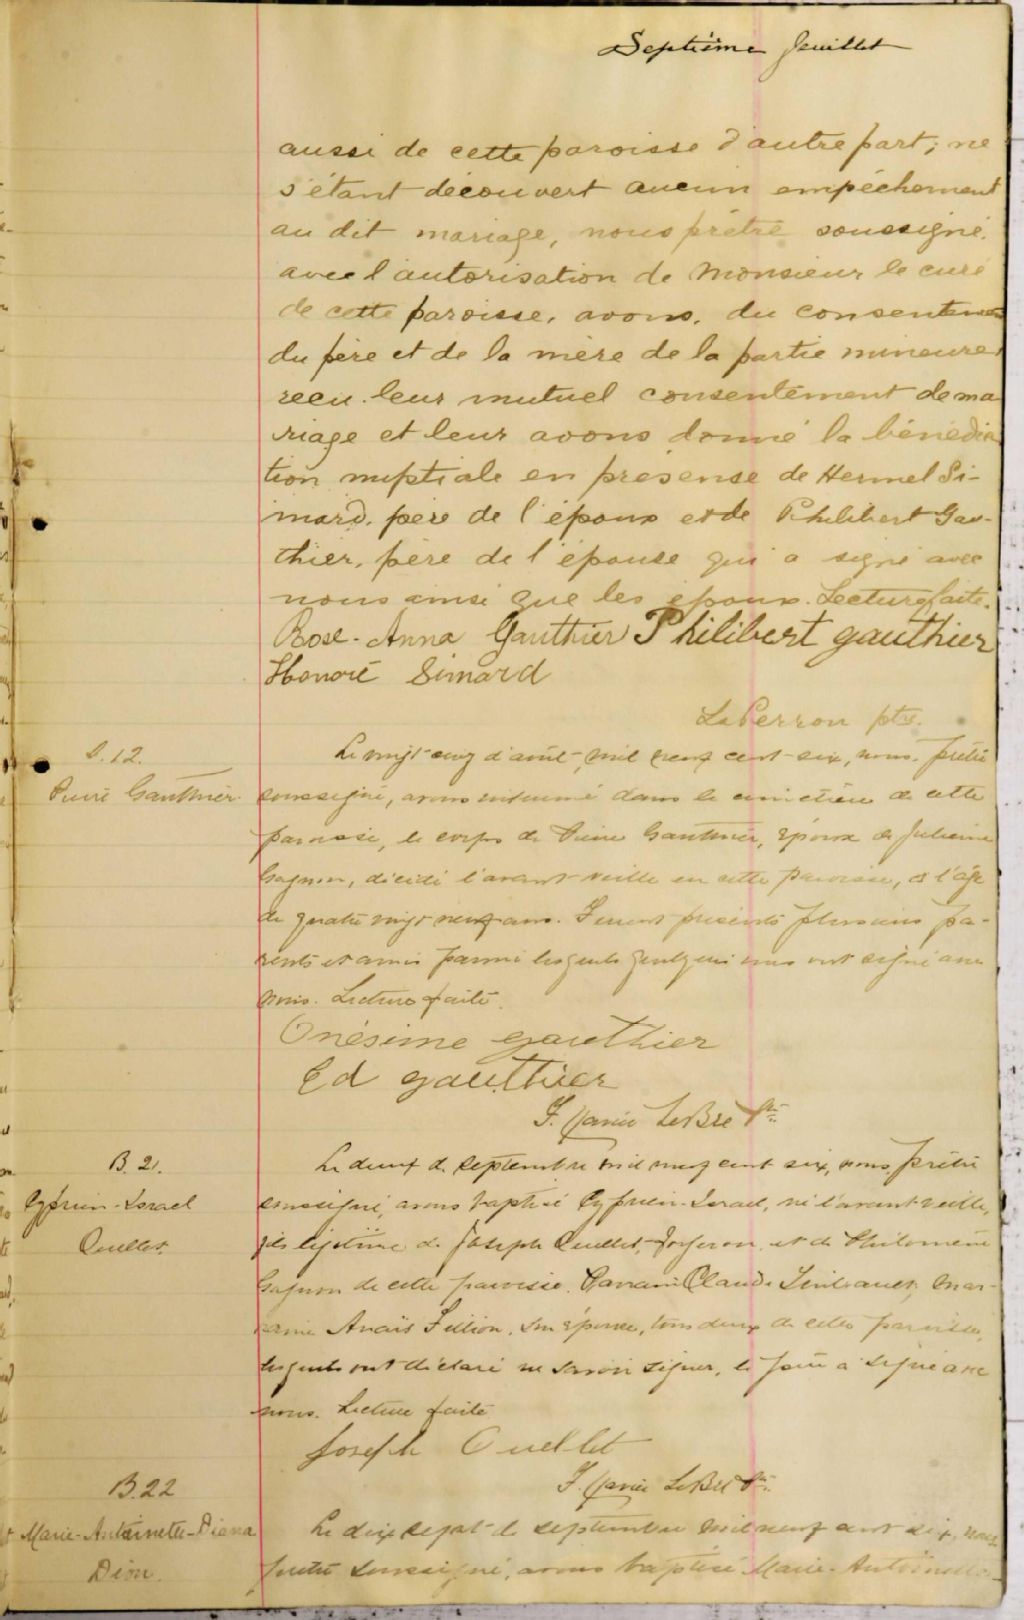 Septième feuillet
aussi de cette paroisse d'autre part; ne
s'étant découvert aucun empêchement
au dit mariage, nous prêtre soussigné,
avec l'autorisation de Monsieur le curé
de cette paroisse, avons, du consenteme
du père et de la mère de la partie mineure,
reçu leur mutuel consentement de ma
riage et leur avons donné la bénédic
tion nuptiale en présense de Hermel Si-
mard, père de l'époux et de Philibert Gau-
thier, père de l'épouse qui a signé avec
nous ainsi que les époux. Lecture faite.
Rose-Anna Gauthier Philibert gauthier
Honoré Simard
LsPerron ptre.
S. 12.
Pierre Gauthier
Le vingt-cinq d'août, mil neuf cent-six, nous, prêtre
soussigné, avons inhumé dans le cimetière de cette
paroisse, le corps de Pierre Gauthier, époux de Julienne
Gagnon, décédé l'avant-veille en cette paroisse, à l'âge
de quatre vingt neuf ans. Furent présents plusieurs pa-
rents et amis parmi lesquels quelques uns ont signé avec
nous. Lecture faite.
Onésime gauthier
Ed gauthier
F. Xavier Ptre
B. 21.
Cyprien-Israel
Ouellet.
Le deux de septembre mil neuf cent six, nous, prêtre
soussigné, avons baptisé Cyprien-Israel, né l'avant-veille,
fils légitime de Joseph Ouellet, forgeron, et de Philomène
Gagnon de cette paroisse. Parrain Claude mar-
raine Anaïs Fillion, son épouse, tous deux de cette paroisse,
lesquels ont déclaré ne savoir signer, le père a signé avec
nous. Lecture faite
Joseph Ouellet
F. Xavier Ptre
B.22
Marie-Antoinette-Diana
Dion.
Le dix sept de septembre mil neuf cent six, nous
prêtre soussigné, avons baptisé Marie-Antoinette-